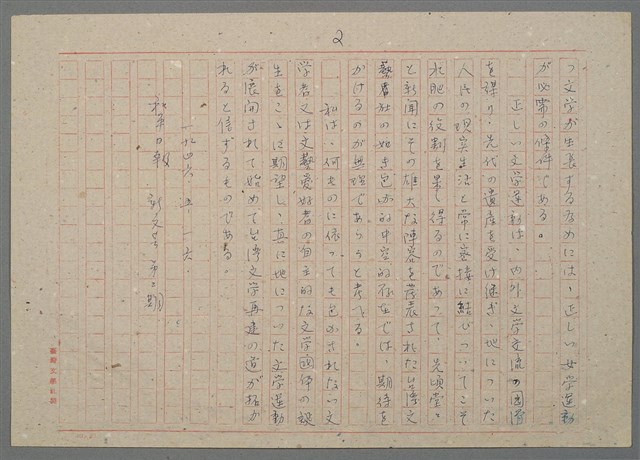 2
つ文学が生長するためには、正しい文学運動
が必需の條件である。
正しい文学運動は、内外文学交流の国
を謀り、先代の遺産を受け継ぎ、地についた
人民の現実生活と常に密接に結びついてこそ
水肥の役割を果し得るのであつて、先頃堂々
と新聞にその雄大な陣容を発表された台湾文
藝春社の如き包弁的中空的存在では、期待を
かけるのが無理であらうと考へる。
私は、何ものに依つても包弁されない文
学者又は文藝愛好者の自主的な文学団体の誕
生をこゝに期望し、真に地についた文学運動
が展開されて始めて台湾文学再建の道が拓か
れると信ずるものである。
一九四六、五、一六、
和平日報 新文学第二期